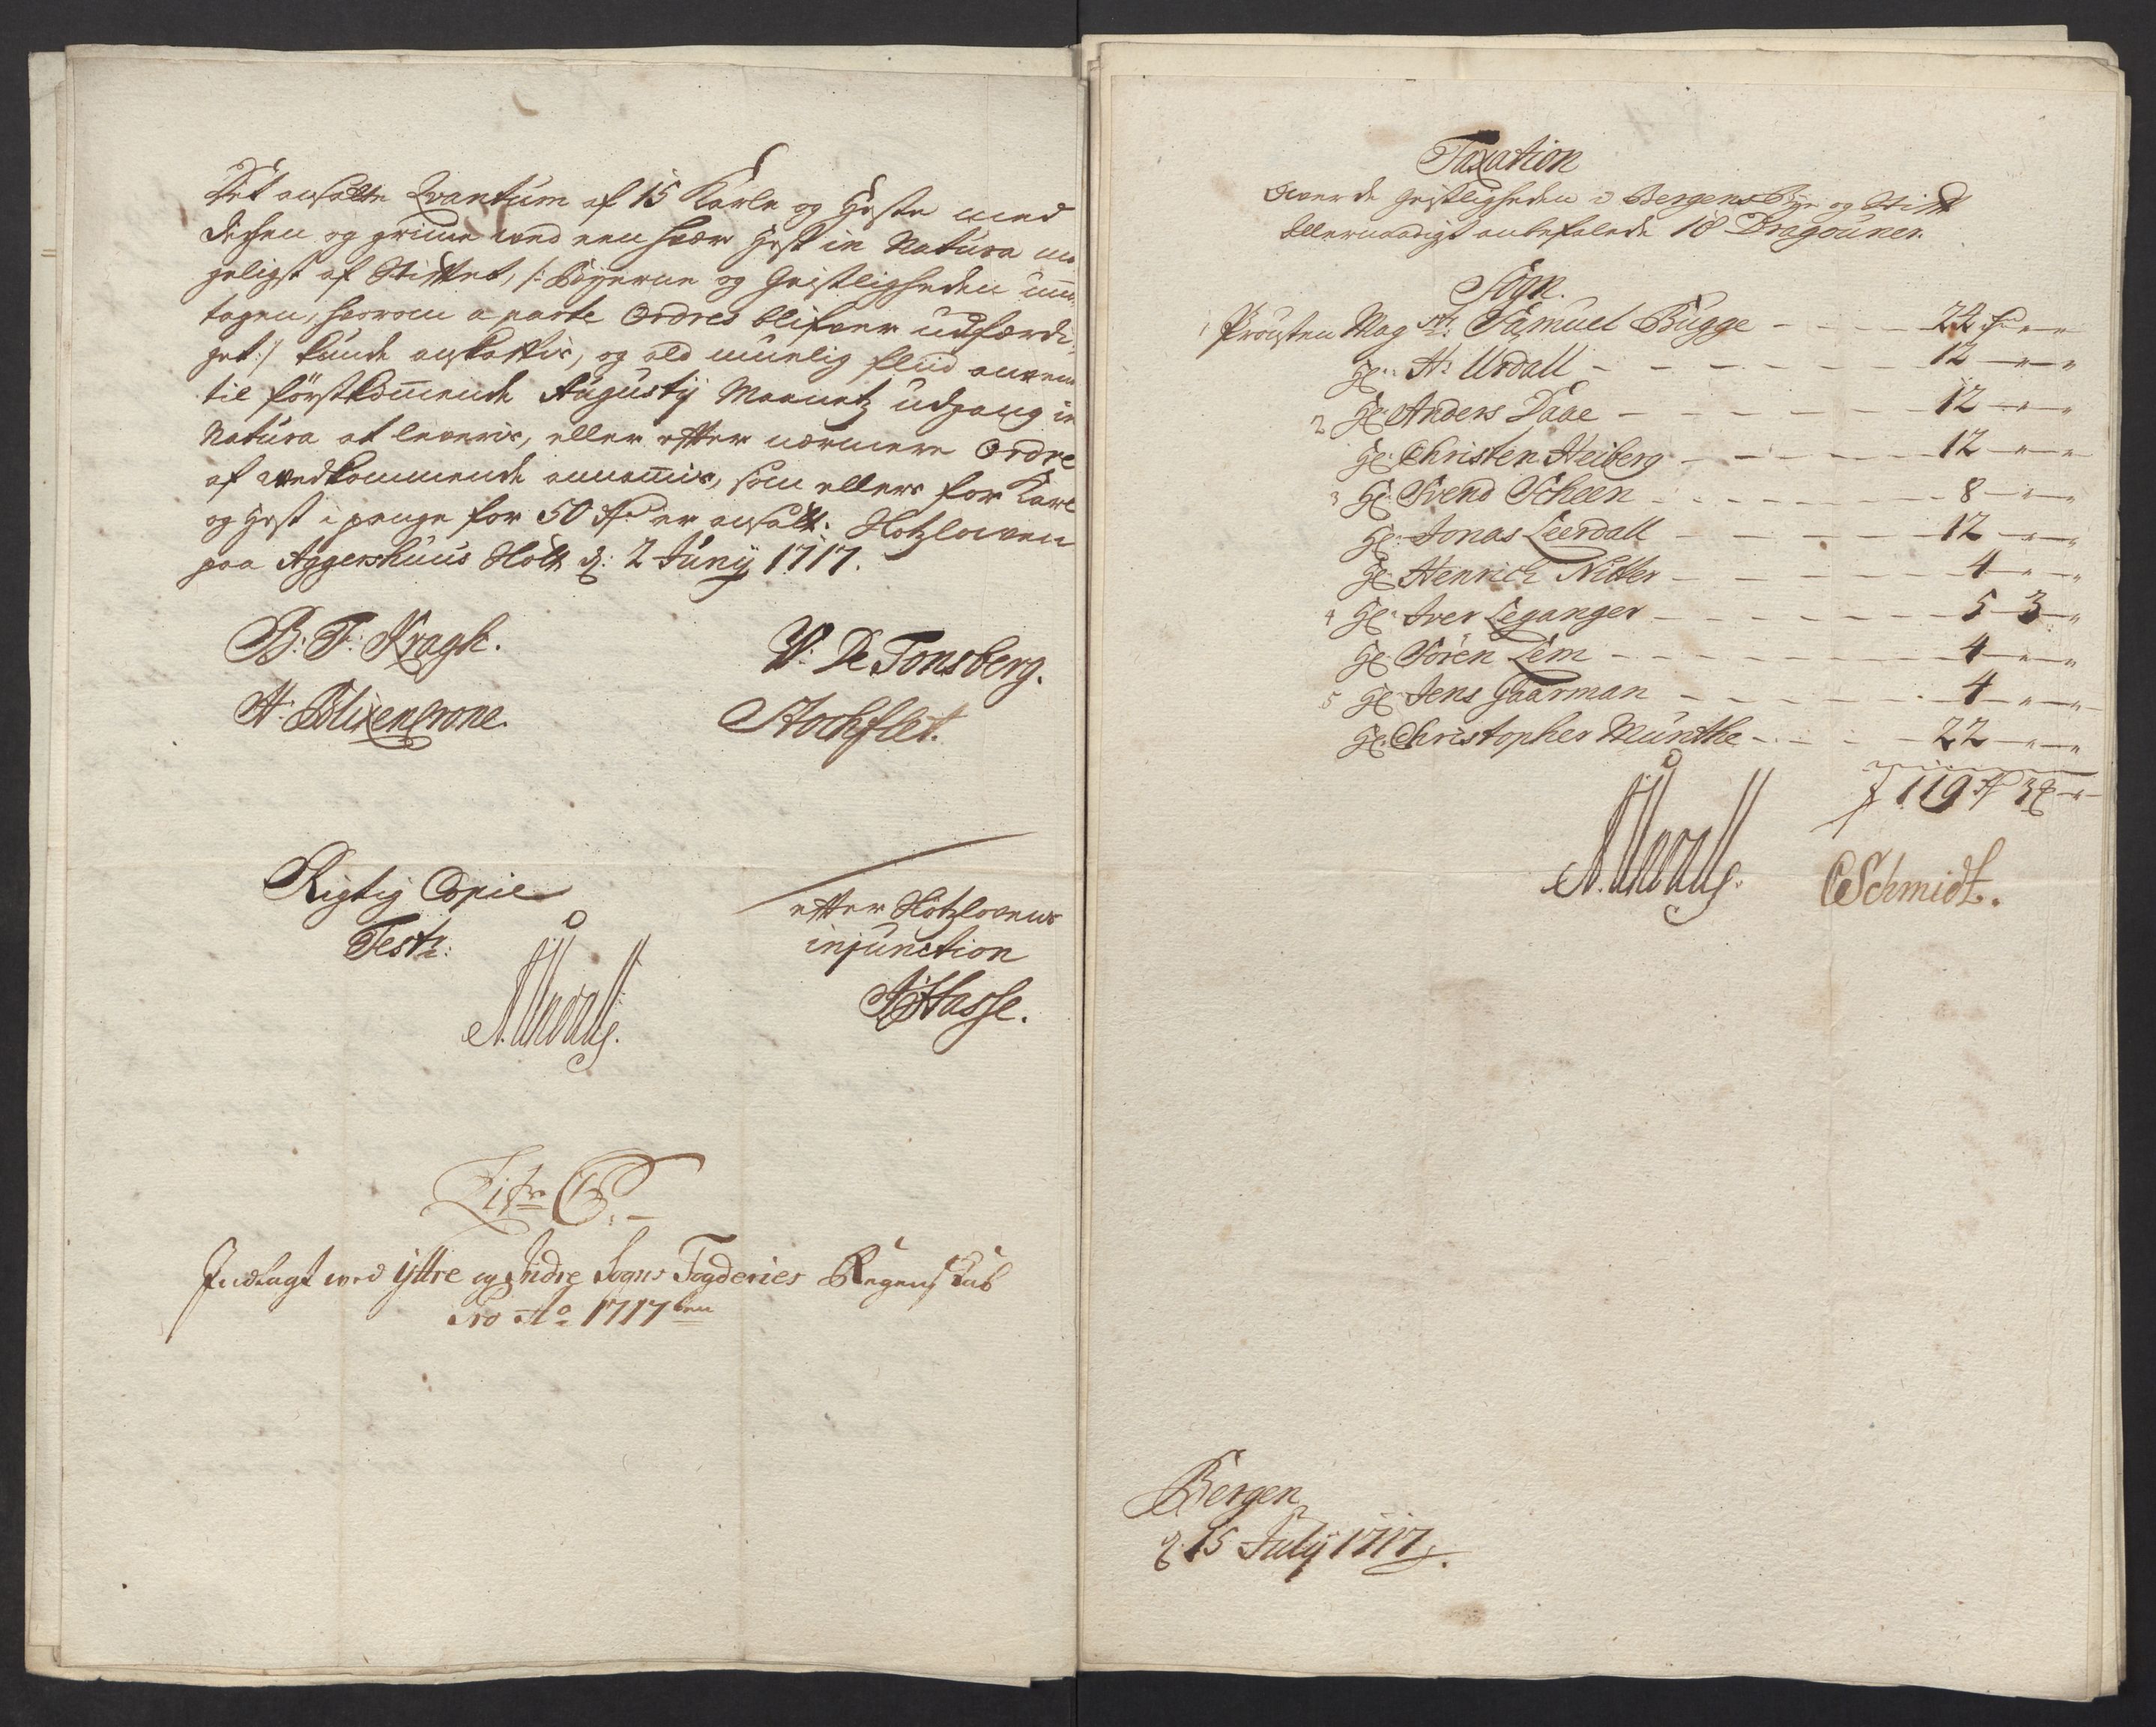 Det ansatte Qvantum af 15 Karle og Heste med
dechen og grime ved een hver Hest in Natura mu
geligst af Stiftet, /: Byerne og Geistligheden und
tagen, hvorom a parte Ordres blifver udfærdi
get :/ kunde anskaffis, og ald muelig fliid anvend
til förstkommende Augusty Maanetz udgang in
Natura at leveris, eller efter nærmere Ordre
af vedkommende annammis, som ellers for Karl
og Hest i penge for 50 rd er ansatt. Slotzloven
paa Aggershuus Slott d: 2 Juny 1717.
B: F: Kragh. W: De Tonsberg.
H: Blixencrone. Stochflet.
Rigtig Copie
Test:
efter Slotzlovens
injunction
Hasse.
Litr C.
Indlagt ved Yttre og Indre Sogns Fogderies Regenskab
Pro Ao 1717ben
Taxation
Over de Geistligheden i Bergens Bye og Stift
Allernaadigst anbefalede 18 Dragouner.
Sogn.
1 Prousten Mag str. Samuel Bugge - - - 22 rd " "
Hr: H: Urdall - - - 12 - " - "
2 Hr: Anders Daae - - - 12 - " - "
Hr: Christen Heiberg - - - 12 - " - "
3 Hr: Svend Scheen - - - 8 - " - "
Hr: Jonas Leerdall - - - 12 - " - "
Hr: Henrich Nitter - - - 4 - " - "
4 Hr: Iver Leganger - - - 5 - 3 - "
Hr: Sören Lem - - - 4 - " - "
5 Hr: Jens Gaarman - - - 4 - " - "
Hr: Christopher Munthe - - - 22 - " - "
119 rd 3 - " -
CSchmidt.
Bergen
d 15 July 1717.